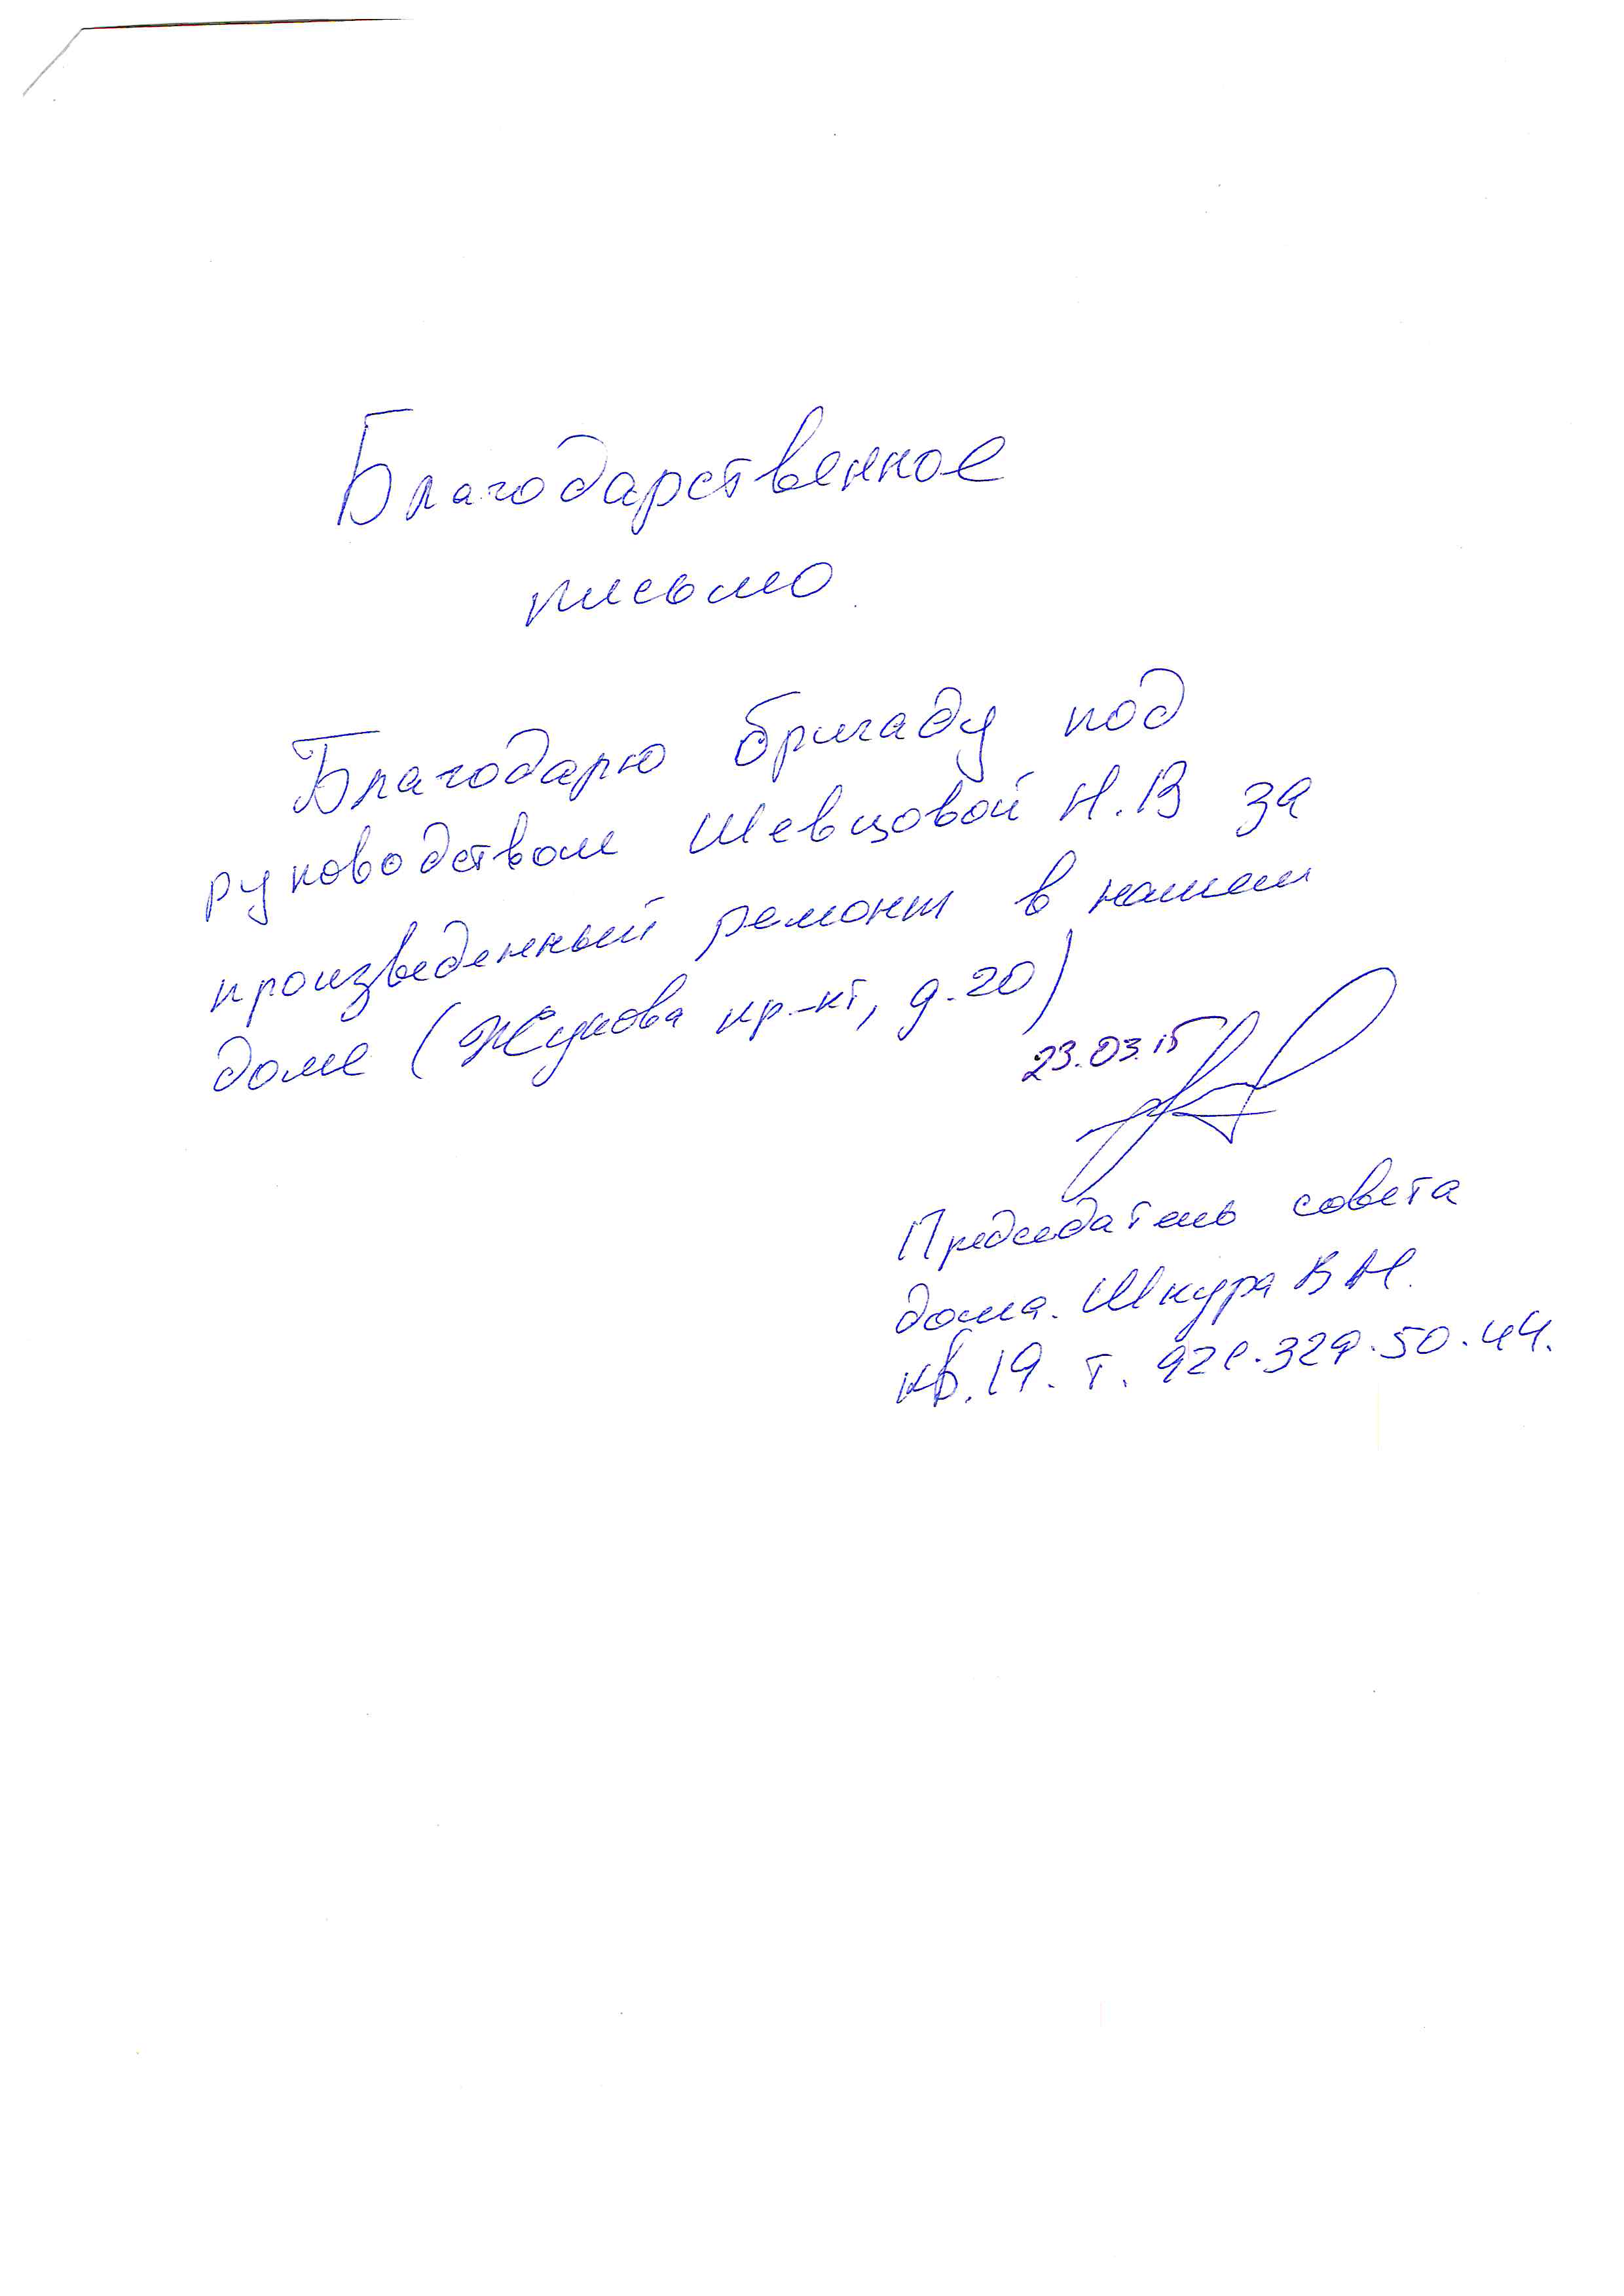 Благодарственное
письмо
Благодарю бригаду под
руководством Шевцовой Н.В за
произведенный ремонт в нашем
доме (Жукова пр-кт, д.20)
23.03.15
Председатель совета
дома. Шкура В Н.
кв.19. т. 921.329.50.44.